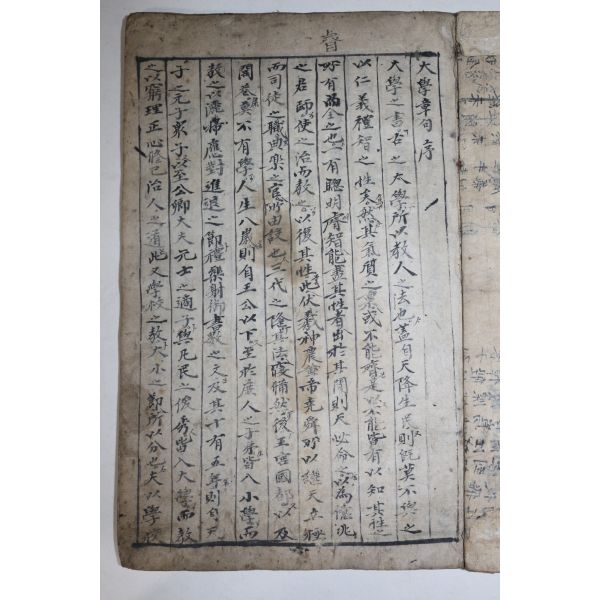 大學章句序
大學之書古之太學所以敎人之法也盖自天降生民則旣莫不與之
以仁義禮智之性矣然其氣質之稟或不能齊是以不能皆有以知其性之
所有而全之也一有聰明睿智能盡其性者出於其間則天必命之以爲億兆
之君師使之治而敎之以復其性此伏羲神農黃帝堯舜所以継天立極
而司徒之職典樂之官所由設也三代之隆其法寢備然後王宮國都以及
閭巷莫不有學人生八歲則自王公以下至於庶人之子弟皆入小學而
敎之以灑掃應對進退之節禮樂射御書數之文及其十有五年則自天
子之元子衆子以至公卿大夫元士之適子與凡民之俊秀皆入大學而敎
之以窮理正心脩己治人之道此又學校之敎大小之節所以分也夫以學校